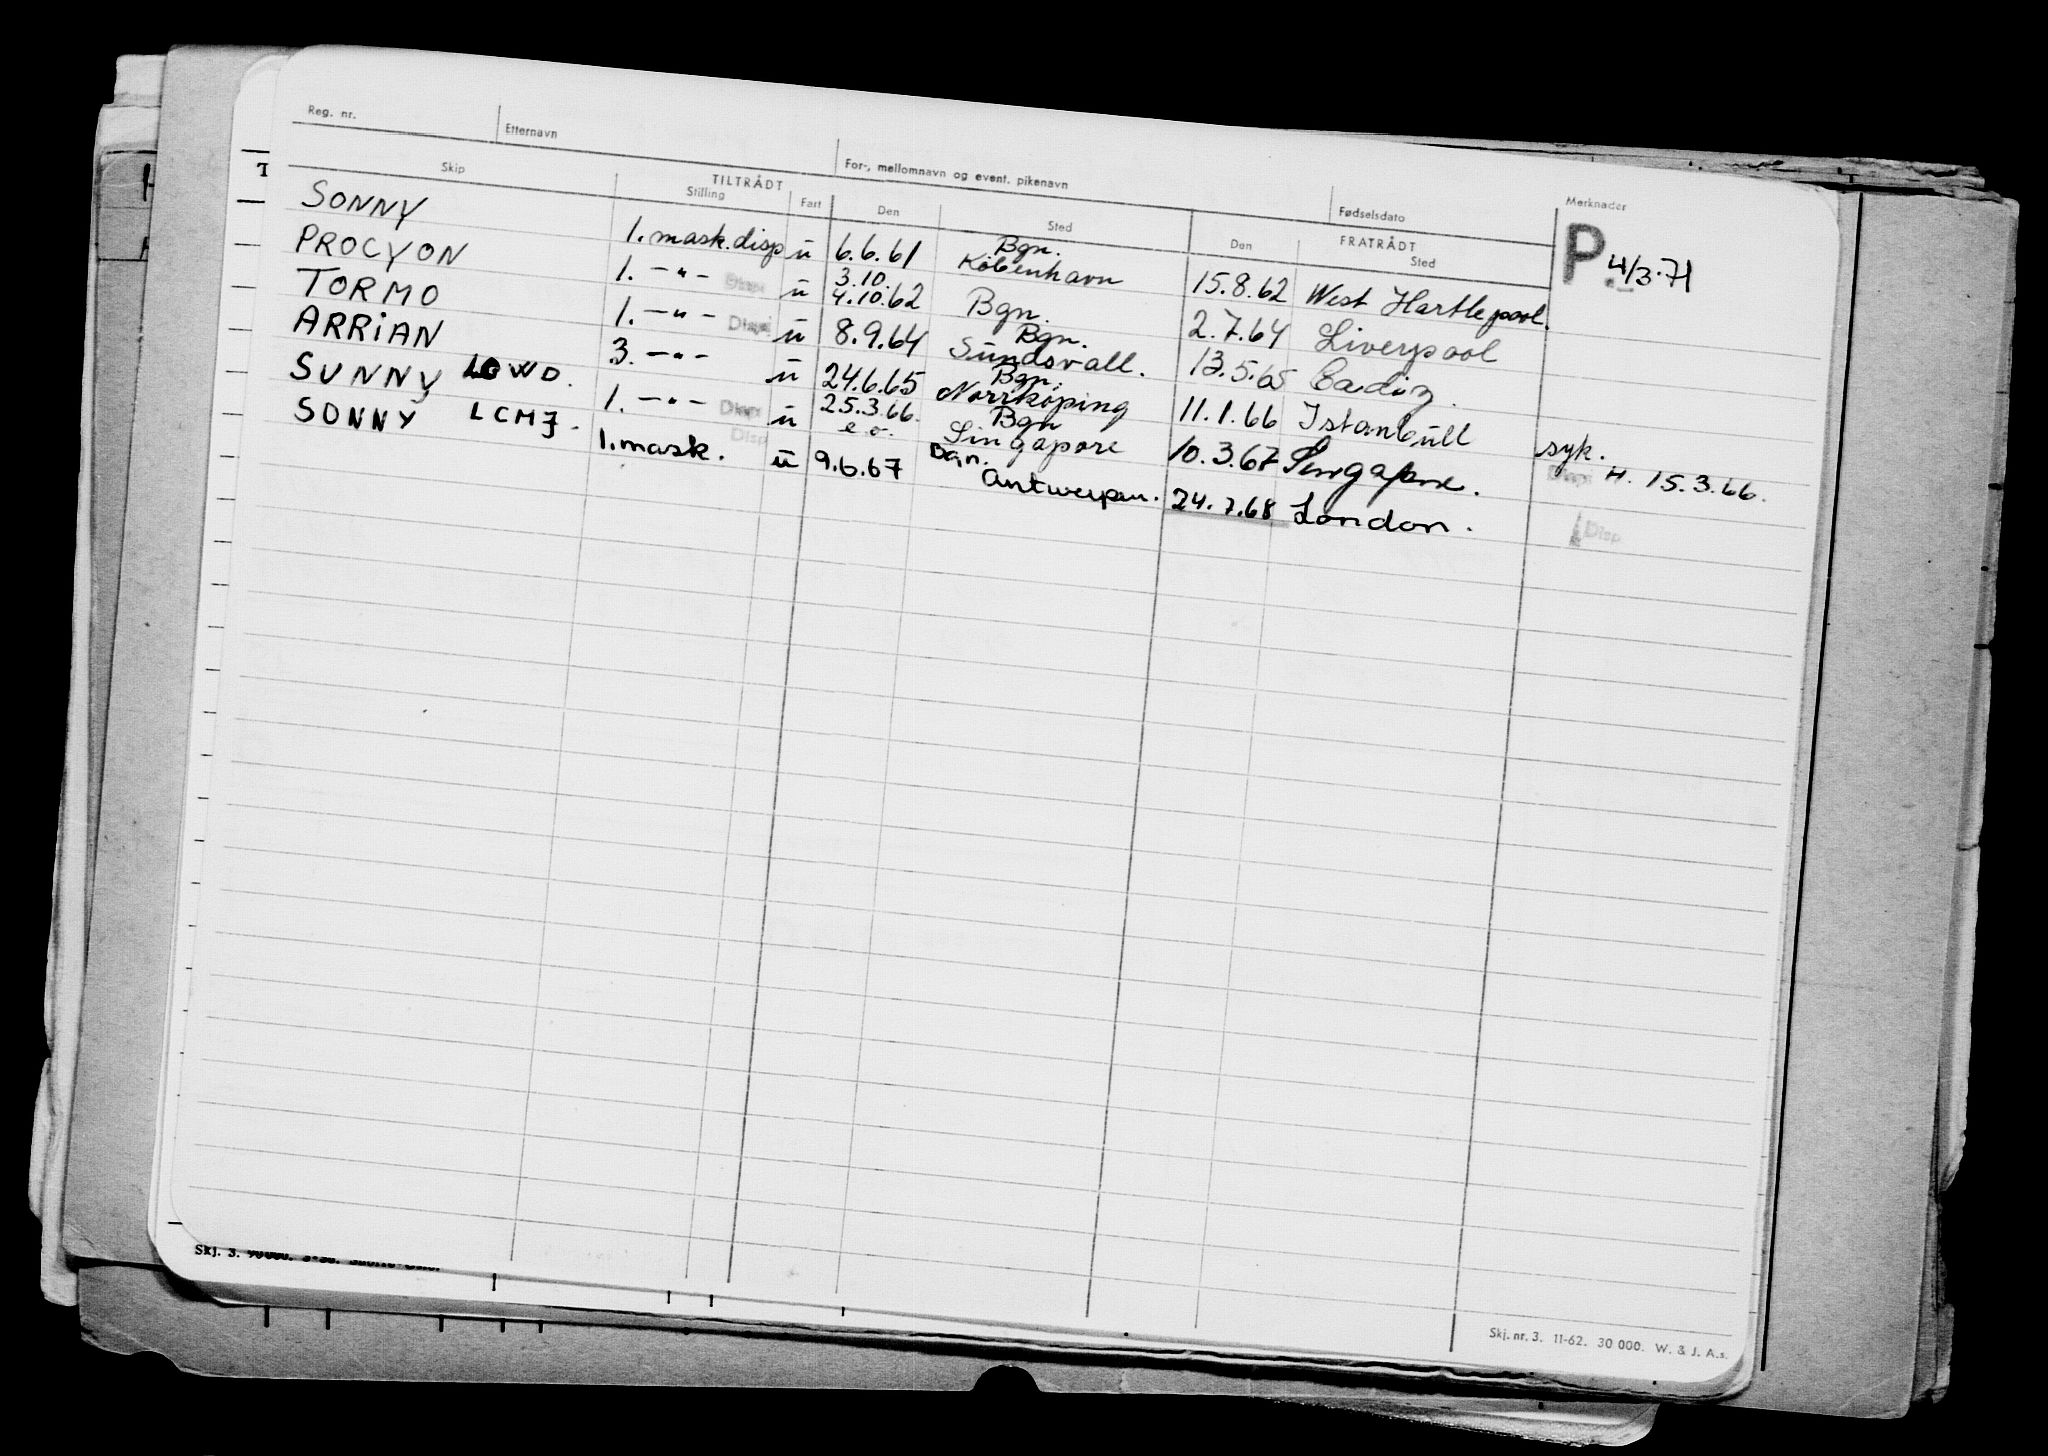 Reg. nr. Etternavn For-, mellomnavn og event. pikenavn Fødselsdato Merknader
Skip TILTRÅDT Stilling Fart Den Sted Den FRATRÅDT Sted
P. 4/3.71
SONNY 1. mask. disp u 6.6.61 Bgn. København 15.8.62 West Hartlepool.
PROCYON 1. -"- Disp u 3.10. 4.10.62 Bgn. 2.7.64 Liverpool
TORMO 1. -"- Disp u 8.9.64 Bgn. Sundsvall. 13.5.65 Cadiz.
ARRIAN 3. -"- u 24.6.65 Bgn. Norrköping 11.1.66 Istanbull syk.
SUNNY LGWD. 1. -"- Disp u 25.3.66. e.o. Bgn Singapore 10.3.67 Singapore. Disp H. 15.3.66.
SONNY LCMJ. 1. mask. Disp u 9.6.67 Bgn. Antwerpen. 24.7.68 London. Disp
Skj. 3.
Skj. nr. 3. 11-62. 30 000. W. & J. A.s.